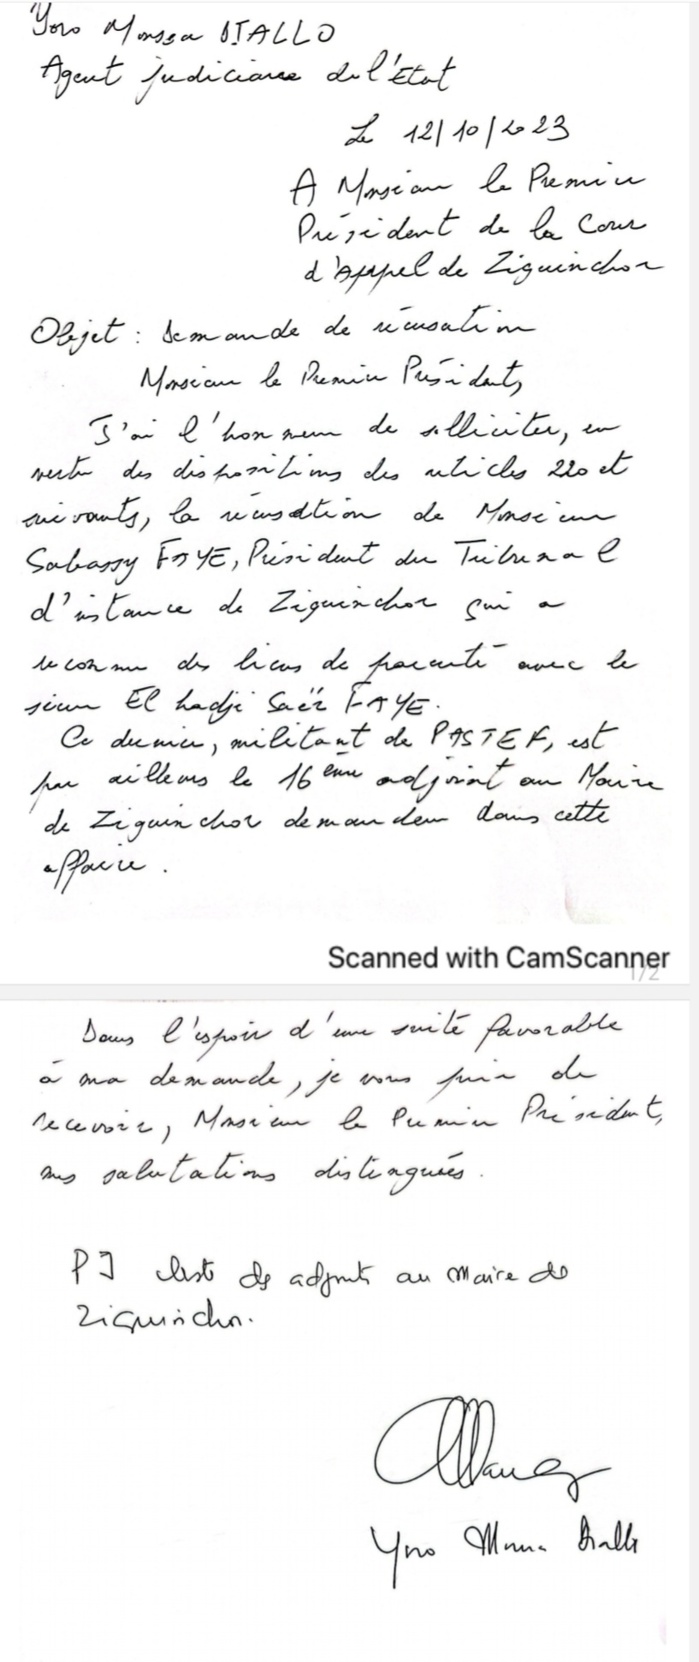 Yoro Moussa DIALLO
Agent judiciaire de l'Etat
Le 12/10/2023
A Monsieur le Premier
Président de la Cour
d'Appel de Ziguinchor
Objet : Demande de récusation
Monsieur le Premier Président,
J'ai l'honneur de solliciter, en
vertu des dispositions des articles 220 et
suivants, la récusation de Monsieur
Sabassy FAYE, Président du Tribunal
d'instance de Ziguinchor qui a
reconnu des liens de parenté avec le
sieur El hadji Saër FAYE.
Ce dernier, militant de PASTEF, est
par ailleurs le 16ème adjoint au Maire
de Ziguinchor demandeur dans cette
affaire.
Scanned with CamScanner
1/2
Dans l'espoir d'une suite favorable
à ma demande, je vous prie de
recevoir, Monsieur le Premier Président,
mes salutations distinguées.
PJ liste des adjoints au Maire de
Ziguinchor.
Yoro Moussa Diallo